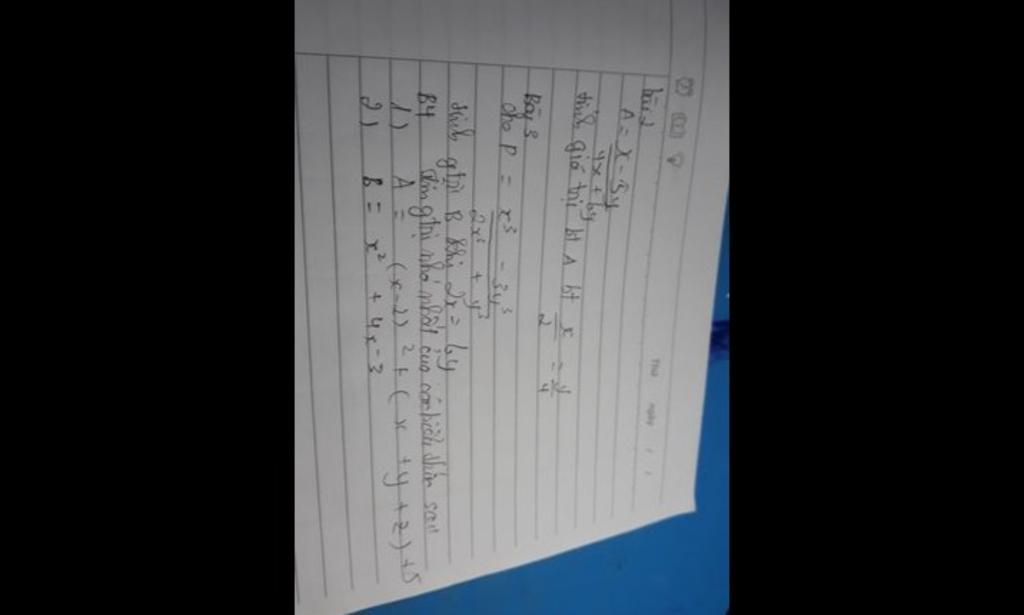 Thứ ngày / /
bài 2
A = x - 5y / 4x + 6y
tính giá trị bt A bt x/2 = y/4
Bài 3
cho P = x³ - 3y³ / 2x³ + y³
tính gtrị B khi 2x = 6y
B4 tìm gtrị nhỏ nhất của các biểu thức sau
1) A = (x-2)² + (x + y + 2) + 5
2) B = x² + 4x - 3